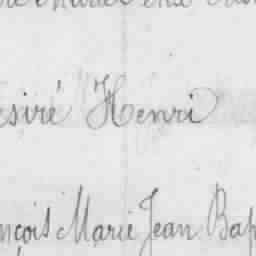 esiré Henri
nçois Marie Jean Bap